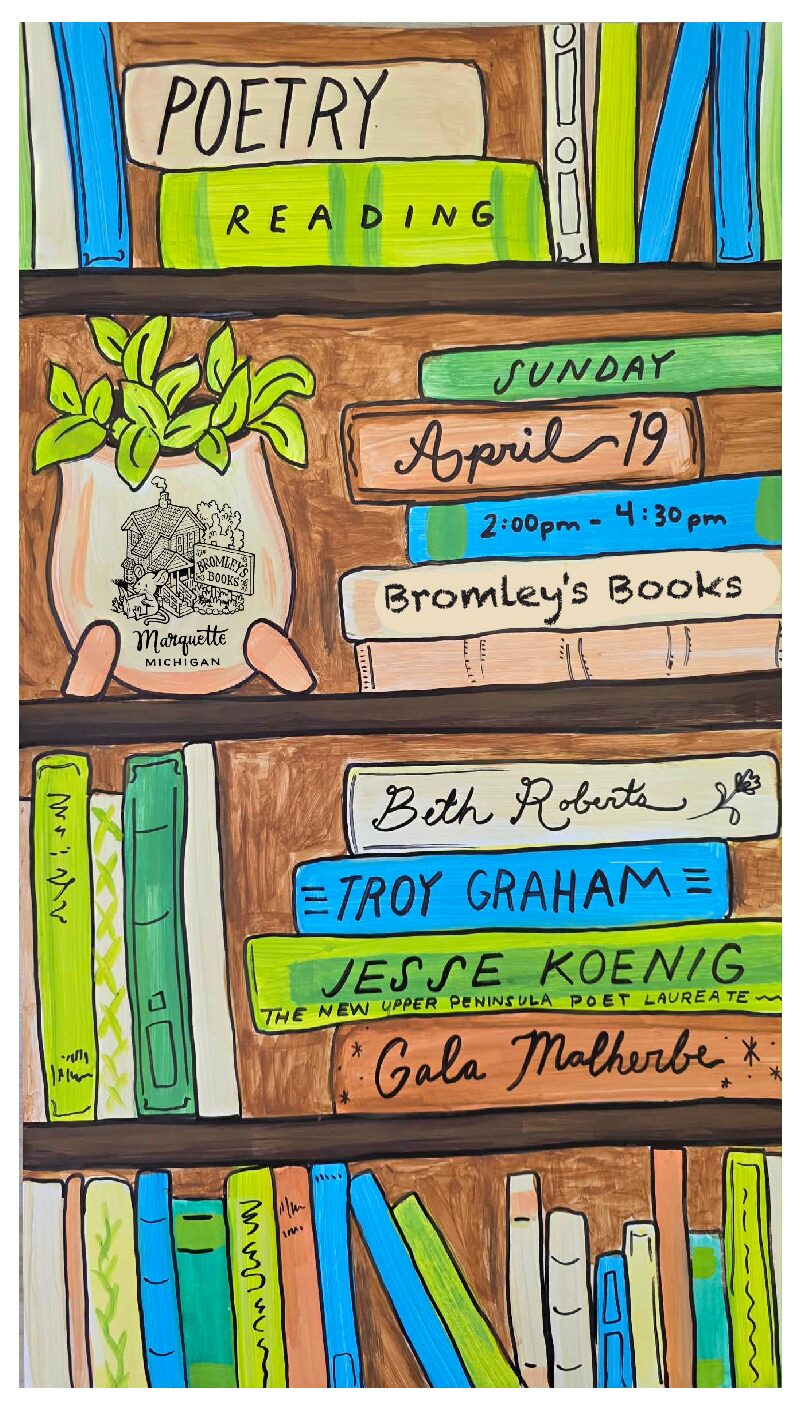 POETRY
READING
SUNDAY
April 19
2:00pm - 4:30pm
BROMLEY'S
BOOKS
Marquette
MICHIGAN
Bromley's Books
Beth Roberts
TROY GRAHAM
JESSE KOENIG
THE NEW UPPER PENINSULA POET LAUREATE
Gala Malherbe